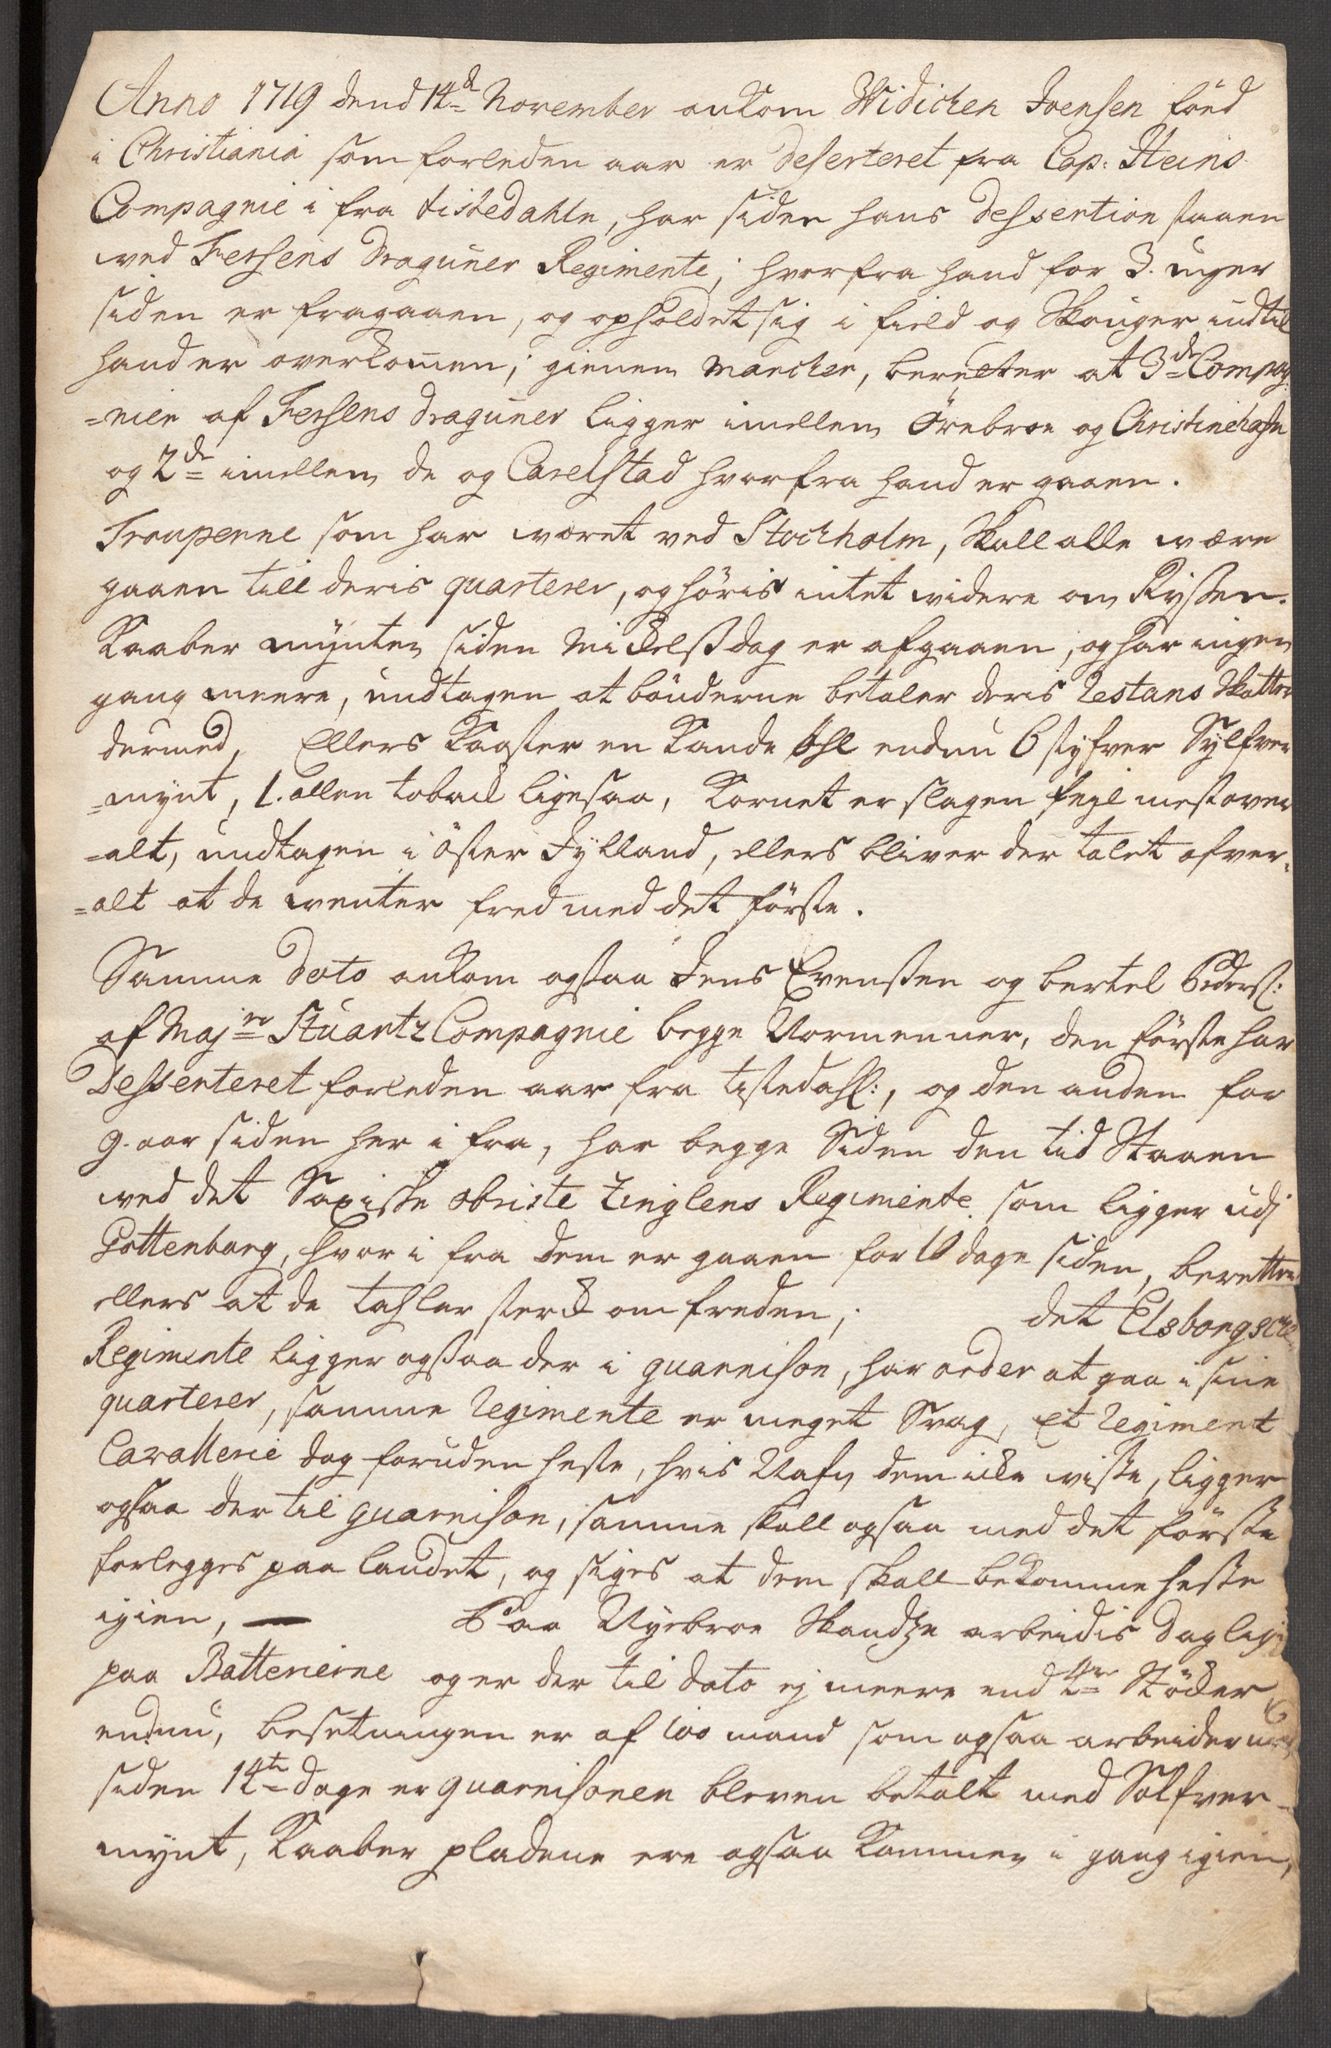 Anno 1719 dend 14d November ankom Widichen Ivensen föed
i Christiania som forleden aar er deserteret fra Cap: Steins
Compagnie i fra tistedahln, har siden hans dessertion staaen
ved Fersens Draguner Regimente, hvorfra hand for 3. uger
siden er fragaaen, og opholdet sig i field og Skouger indtil
hand er overkom̄en; gienem Marcker, beretter at 3de Compag:
=nier af Fersens draguner ligger imellem Örebroe og Christinehafn
og 2de imellem de og Carelstad hvorfra hand er gaaen.
Troupenne som har wæret ved Stockholm, Skall alle være
gaaen till deris quarterer, og höris intet videre om Ryssen.
Kaaber mynten siden Mickelsdag er afgaaen, og har ingen
gang meere, undtagen at bönderne betaler deris Restans Skatter
dermed, Ellers kaaster en kande öhl endnu 6 styfver Sylfver
=mynt, 1. allen toback ligesaa, Kornet er slagen feyl mest over
=alt, undtagen i öster Jylland, ellers bliver der talet afver=
=alt at de wenter fred med det förste.
Samme dato ankom ogsaa Jens Evensen og bertel Peders:
af Majrr Stuartz Compagnie begge Normenner, den förste har
Dessenteret forleden aar fra tistedahl:, og den anden for
9. aar siden her i fra, har begge Siden den tid Staaen
ved det Saxiske obriste Zinglens Regimente som ligger udj
Gottenborg, hvor i fra dem er gaaen for 10 dage siden, beretter
ellers at de tahler sterck om freden; det Elsborgsche
Regimente ligger ogsaa der i guarnison, har order at gaa i sine
quarterer, samme Regimente er meget Svag, Et Regiment
Cavallerie dog foruden heste, hvis Nafn dem icke viste, ligger
ogsaa der til guarnison, samme skall ogsaa med det förste
forlegges paa landet, og siges at dem skall bekomme heste
igien, — Paa Nyebroe Skandze arbeidis daglig
paa Batterierne og er der til dato ej meere end 4re Stöcker
endnu, besetningen er af 100 mand som ogsaa arbeider
siden 14te dage er guarnisonen bleven betalt med Sölfver=
mynt, Kaaber pladene ere ogsaa kommen i gang igien,